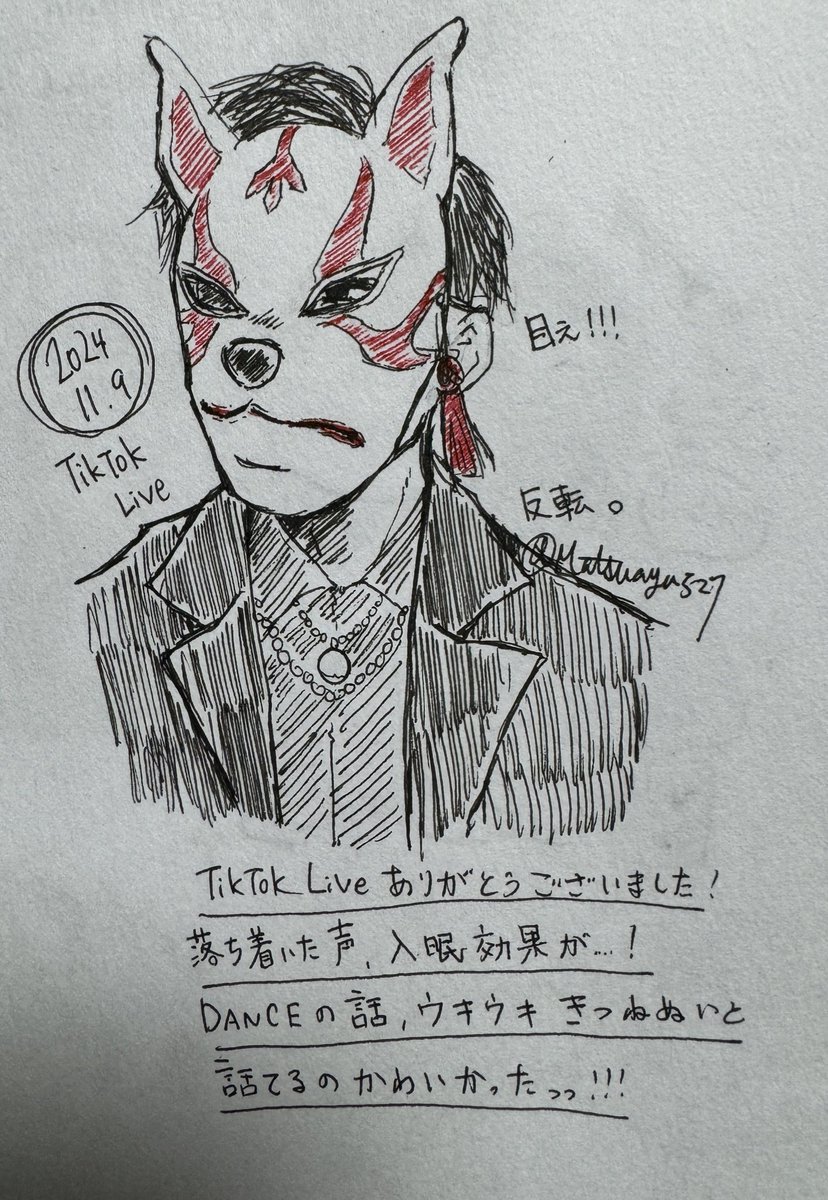 2024
11.9
TikTok
Live
目え!!!
反転。
@Matsuayu527
TikTok Live ありがとうございました!
落ち着いた声、入眠効果が…!
DANCEの話、ウキウキ きつねぬいと
話てるの かわいかったっっ!!!